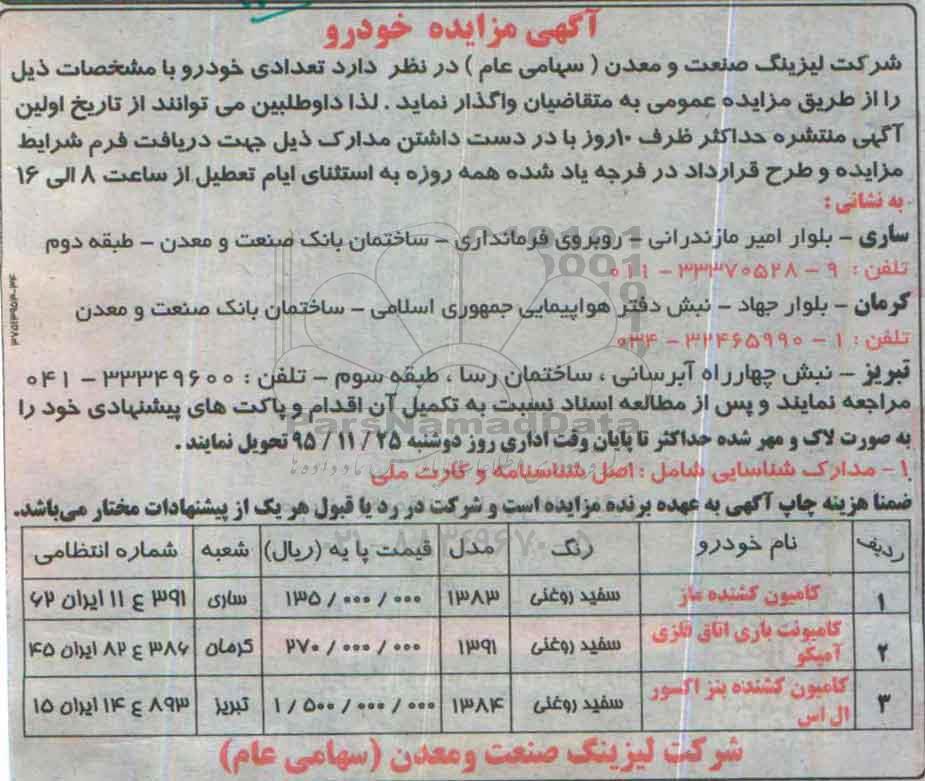 آگهی مزایده خودرو
شرکت لیزینگ صنعت و معدن ( سهامی عام ) در نظر دارد تعدادی خودرو با مشخصات ذیل
را از طریق مزایده عمومی به متقاضیان واگذار نماید . لذا داوطلبین می توانند از تاریخ اولین
آگهی منتشره حداکثر ظرف ۱۰روز با در دست داشتن مدارک ذیل جهت دریافت فرم شرایط
مزایده و طرح قرارداد در فرجه یاد شده همه روزه به استثنای ایام تعطیل از ساعت ۸ الی ۱۶
به نشانی :
ساری – بلوار امیر مازندرانی – روبروی فرمانداری – ساختمان بانک صنعت و معدن – طبقه دوم
تلفن : ۹ – ۳۳۳۷۰۵۲۸ – ۰۱۱
کرمان – بلوار جهاد – نبش دفتر هواپیمایی جمهوری اسلامی – ساختمان بانک صنعت و معدن
تلفن : ۱ – ۳۲۴۶۵۹۹۰ – ۰۳۴
تبریز – نبش چهارراه آبرسانی ، ساختمان رسا ، طبقه سوم – تلفن : ۳۳۳۴۹۶۰۰ – ۰۴۱
مراجعه نمایند و پس از مطالعه اسناد نسبت به تکمیل آن اقدام و پاکت های پیشنهادی خود را
به صورت لاک و مهر شده حداکثر تا پایان وقت اداری روز دوشنبه ۲۵ / ۱۱ / ۹۵ تحویل نمایند .
۱ – مدارک شناسایی شامل : اصل شناسنامه و کارت ملی
ضمنا هزینه چاپ آگهی به عهده برنده مزایده است و شرکت در رد یا قبول هر یک از پیشنهادات مختار می‌باشد.
ردیف نام خودرو رنگ مدل قیمت پایه (ریال) شعبه شماره انتظامی
۱ کامیون کشنده ماز سفید روغنی ۱۳۸۳ ۱۳۵/۰۰۰/۰۰۰ ساری ۳۹۱ ع ۱۱ ایران ۶۲
۲ کامیونت باری اتاق فلزی آمیکو سفید روغنی ۱۳۹۱ ۲۷۰/۰۰۰/۰۰۰ کرمان ۳۸۶ ع ۸۲ ایران ۴۵
۳ کامیون کشنده بنز اکسور ال اس سفید روغنی ۱۳۸۴ ۱/۵۰۰/۰۰۰/۰۰۰ تبریز ۸۹۳ ع ۱۴ ایران ۱۵
شرکت لیزینگ صنعت ومعدن (سهامی عام)
ParsNamadData